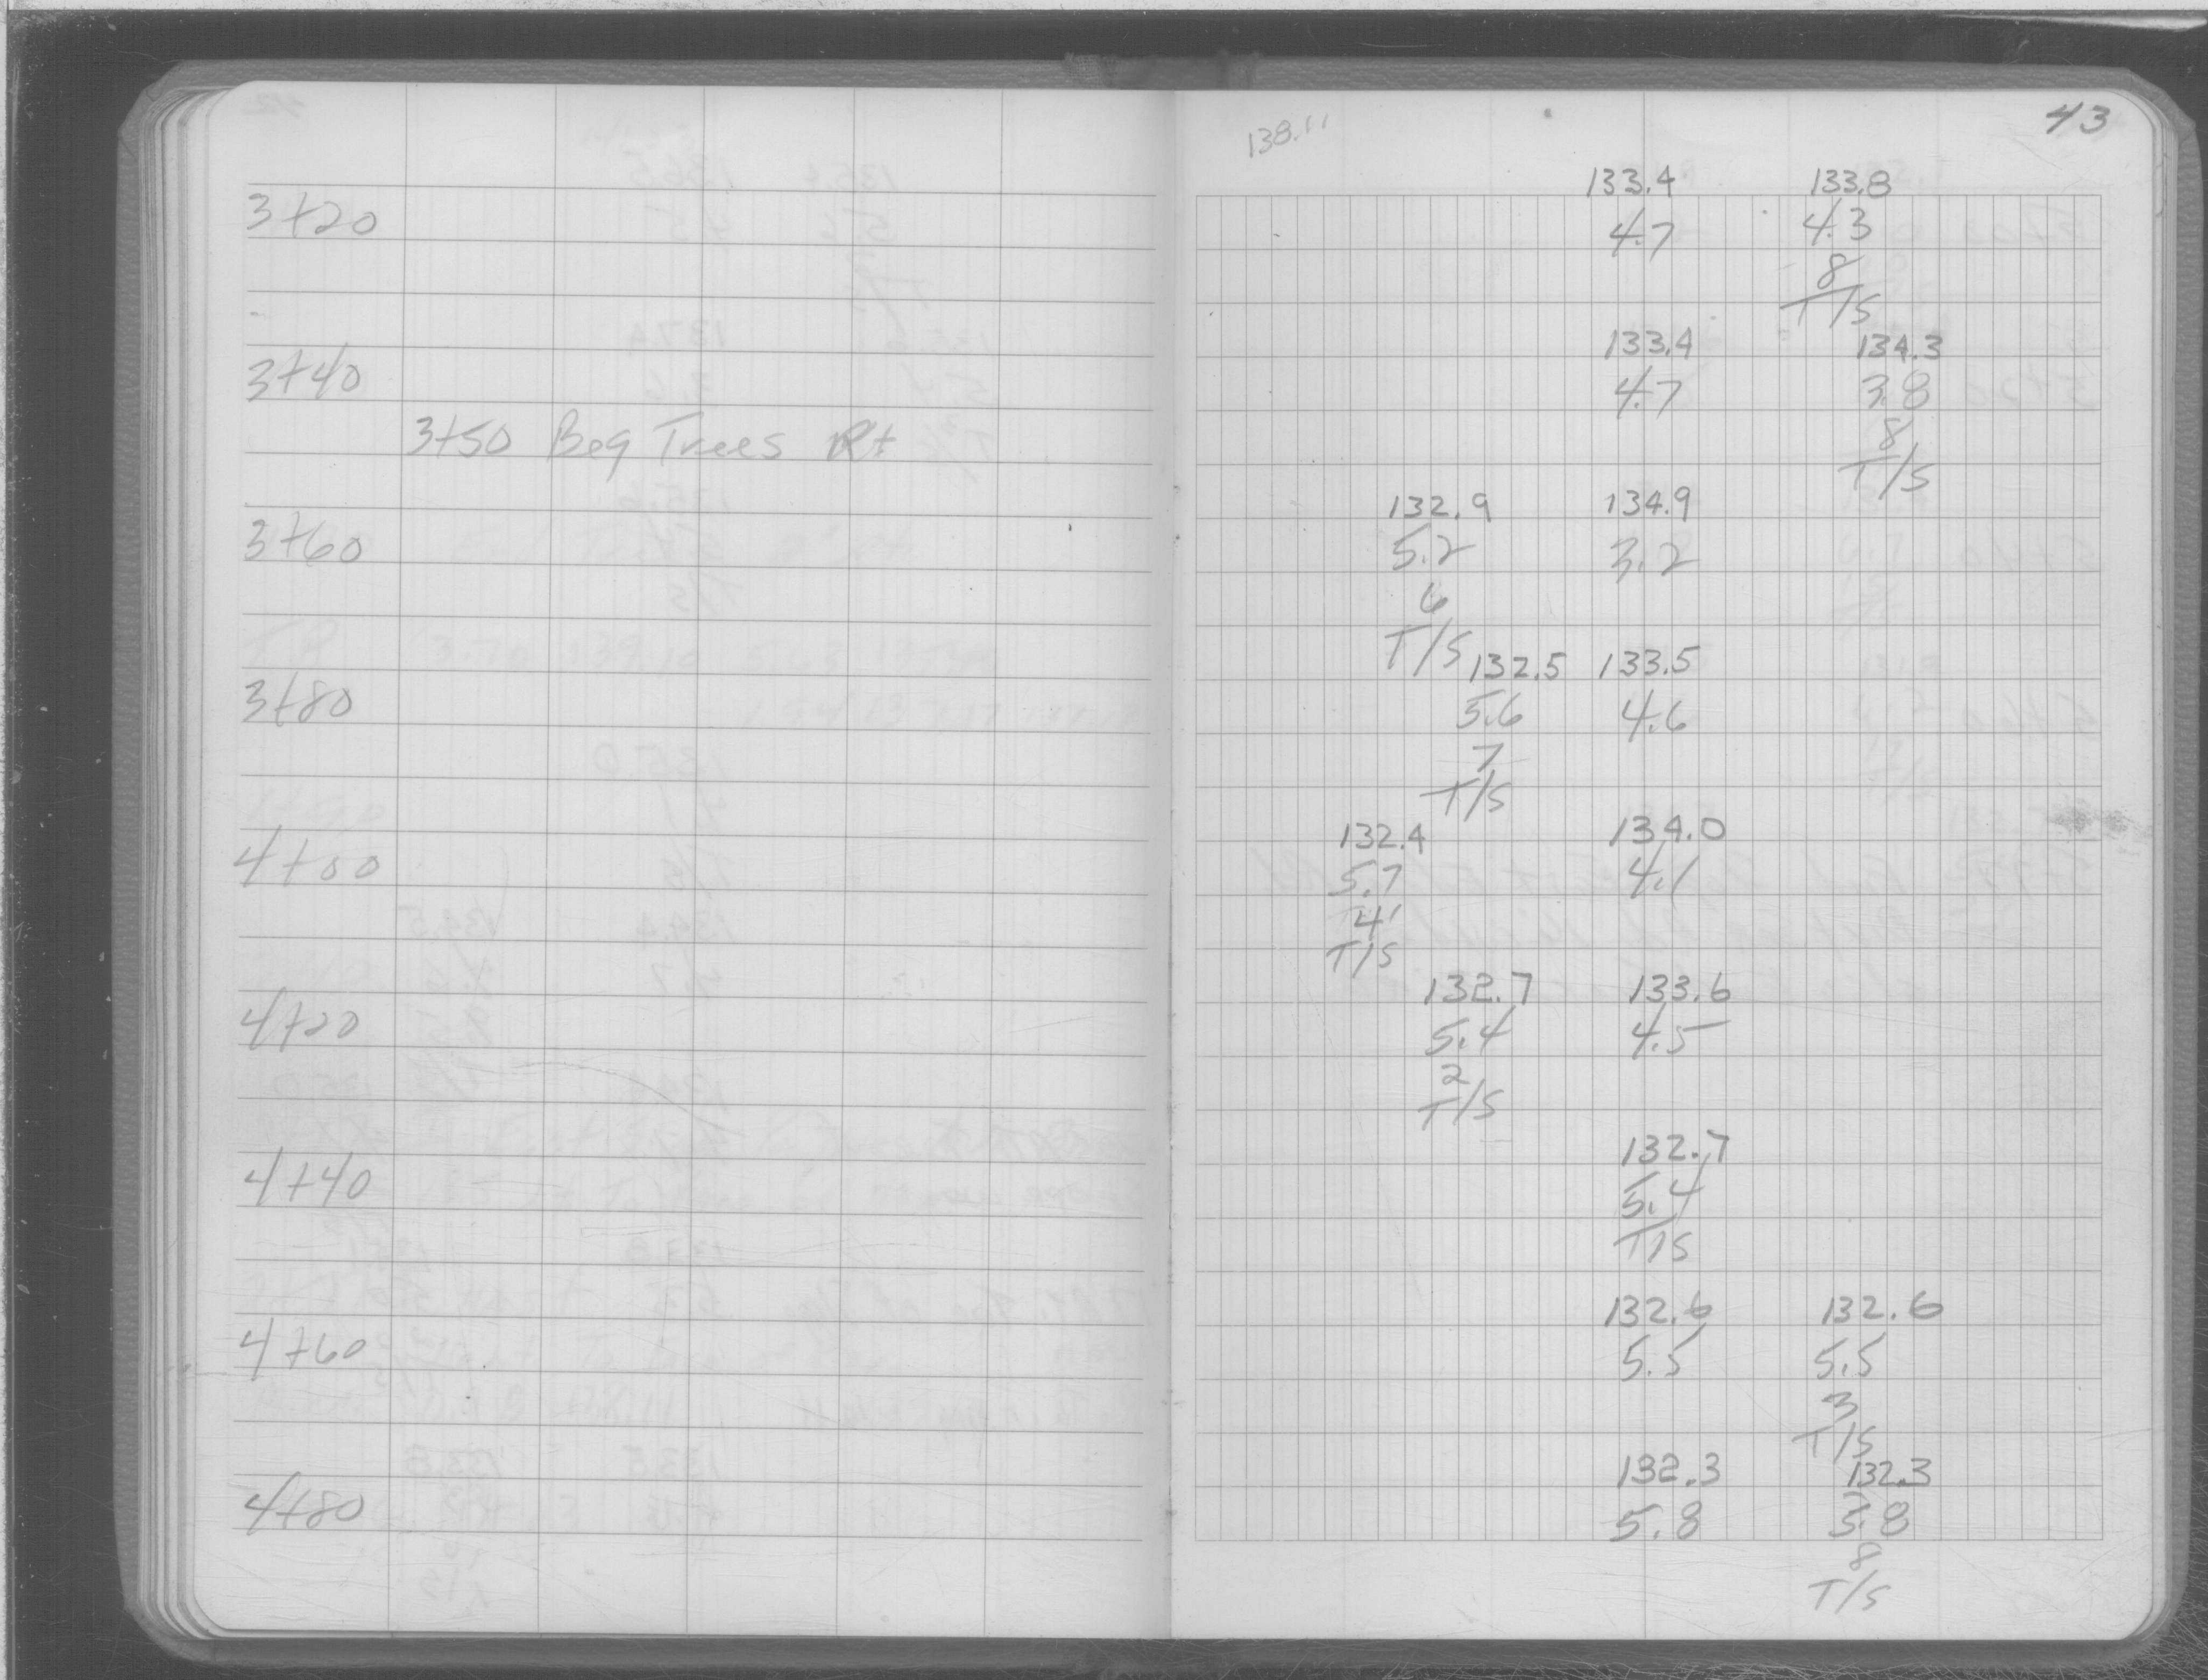 43
138.11
133.4 133.8
3+20 4.7 4.3
8
T/S
133.4 134.3
3+40 4.7 3.8
3+50 Beg Trees Rt 8
T/S
132.9 134.9
3+60 5.2 3.2
6
T/S 132.5 133.5
3+80 5.6 4.6
7
T/S
132.4 134.0
4+00 5.7 4.1
4'
T/S
132.7 133.6
4+20 5.4 4.5
2
T/S
132.7
4+40 5.4
T/S
132.6 132.6
4+60 5.5 5.5
3
T/S
132.3 132.3
4+80 5.8 5.8
8
T/S